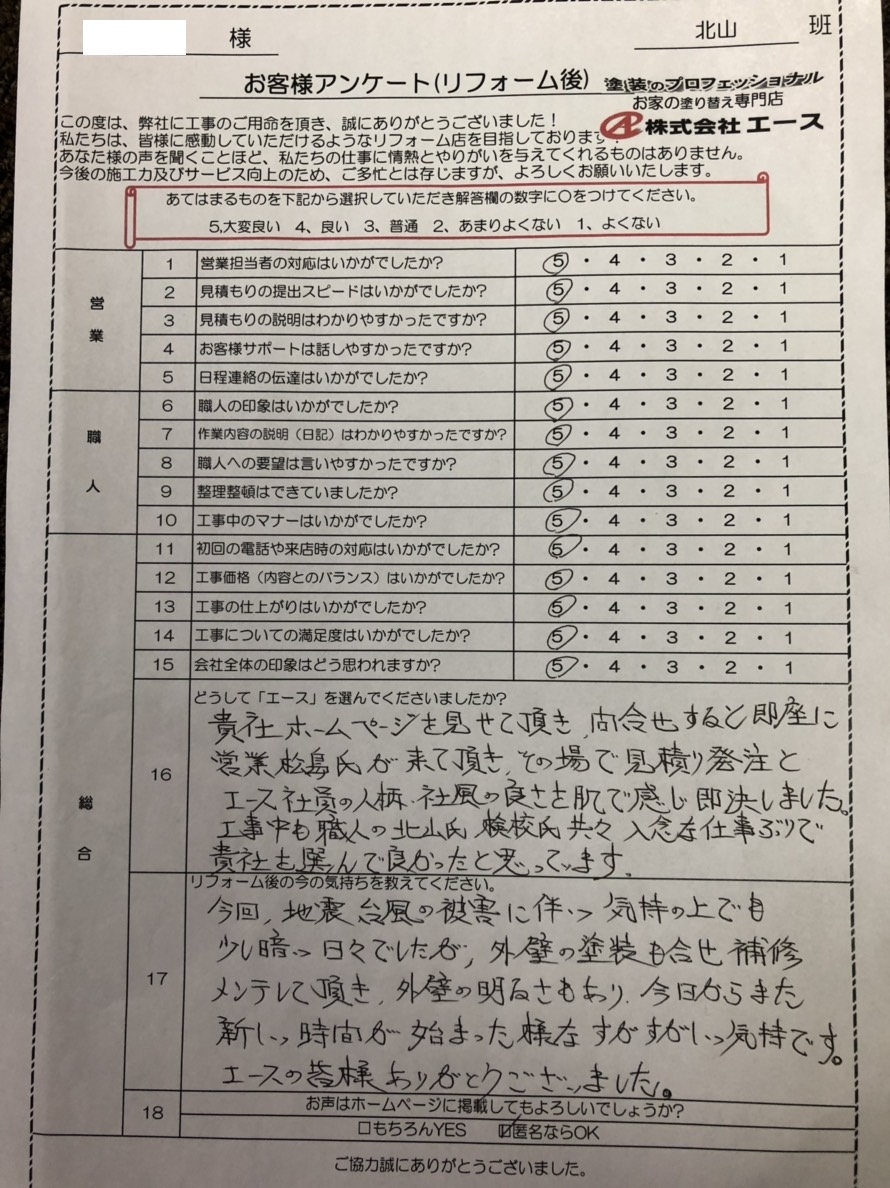 様
北山 班
お客様アンケート(リフォーム後)
塗装のプロフェッショナル
お家の塗り替え専門店
株式会社 エース
この度は、弊社に工事のご用命を頂き、誠にありがとうございました!
私たちは、皆様に感動していただけるようなリフォーム店を目指しております
あなた様の声を聞くことほど、私たちの仕事に情熱とやりがいを与えてくれるものはありません。
今後の施工力及びサービス向上のため、ご多忙とは存じますが、よろしくお願いいたします。
あてはまるものを下記から選択していただき解答欄の数字に〇をつけてください。
5,大変良い 4、良い 3、普通 2、あまりよくない 1、よくない
営業
1 営業担当者の対応はいかがでしたか? 5・4・3・2・1
2 見積もりの提出スピードはいかがでしたか? 5・4・3・2・1
3 見積もりの説明はわかりやすかったですか? 5・4・3・2・1
4 お客様サポートは話しやすかったですか? 5・4・3・2・1
5 日程連絡の伝達はいかがでしたか? 5・4・3・2・1
職人
6 職人の印象はいかがでしたか? 5・4・3・2・1
7 作業内容の説明(日記)はわかりやすかったですか? 5・4・3・2・1
8 職人への要望は言いやすかったですか? 5・4・3・2・1
9 整理整頓はできていましたか? 5・4・3・2・1
10 工事中のマナーはいかがでしたか? 5・4・3・2・1
総合
11 初回の電話や来店時の対応はいかがでしたか? 5・4・3・2・1
12 工事価格(内容とのバランス)はいかがでしたか? 5・4・3・2・1
13 工事の仕上がりはいかがでしたか? 5・4・3・2・1
14 工事についての満足度はいかがでしたか? 5・4・3・2・1
15 会社全体の印象はどう思われますか? 5・4・3・2・1
16 どうして「エース」を選んでくださいましたか?
貴社ホームページを見せて頂き、問合せすると即座に
営業松島氏が来て頂き、その場で見積り発注と
エース社員の人柄、社風の良さを肌で感じ即決しました。
工事中も職人の北山氏 検校氏共々 入念な仕事ぶりで
貴社を選んで良かったと思っています。
17 リフォーム後の今の気持ちを教えてください。
今回、地震台風の被害に伴い気持の上でも
少し暗い日々でしたが、外壁の塗装も合せ補修
メンテして頂き、外壁の明るさもあり、今日からまた
新しい時間が始まった様なすがすがしい気持です。
エースの皆様ありがとうございました。
18 お声はホームページに掲載してもよろしいでしょうか?
□もちろんYES ☑匿名ならOK
ご協力誠にありがとうございました。